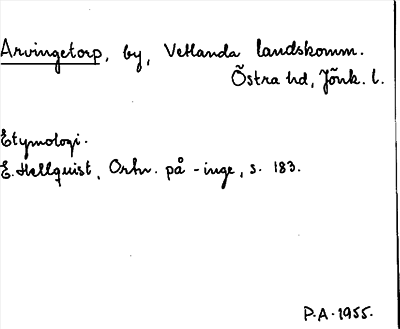 Arvingetorp, by, Vetlanda landskomm.
Östra hd, Jönk. l.
Etymologi.
E. Hellquist, Ortn. på -inge, s. 183.
P.A. 1955.